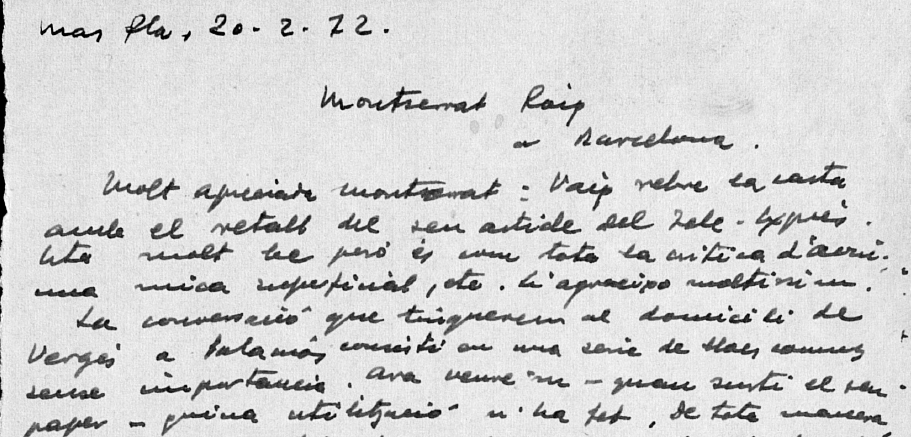 mas Pla, 20-2-72.
Montserrat Roig
a Barcelona.
Molt apreciada Montserrat: Vaig rebre la carta
amb el retall del seu article del Tele-Exprés.
Està molt bé però és com tota la crítica d'ací:
una mica superficial, etc. Li agraeixo moltíssim.
La conversació que tinguérem al domicili de
Vergés a Palamós consistí en una sèrie de llocs comuns
sense importància. Ara veure'm - quan surti el seu
paper - quina utilització n'ha fet. De tota manera,